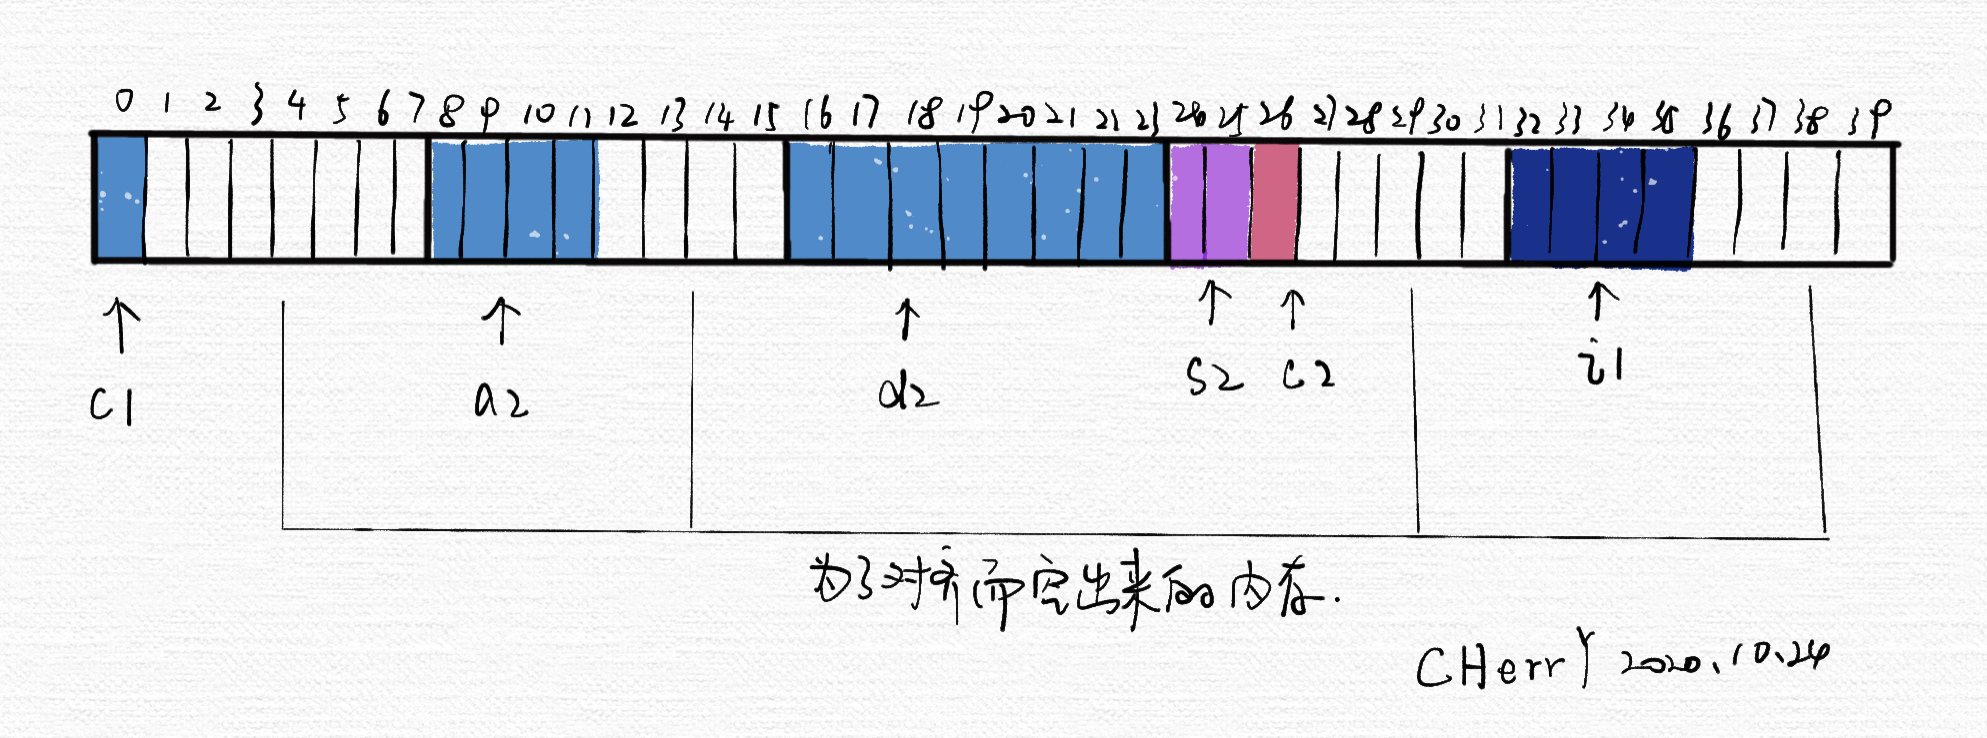 0 1 2 3 4 5 6 7 8 9 10 11 12 13 14 15 16 17 18 19 20 21 21 23 24 25 26 27 28 29 30 31 32 33 34 35 36 37 38 39
c1 a2 d2 s2 c2 i1
为了对齐而空出来的内存.
CHerrY 2020.10.24